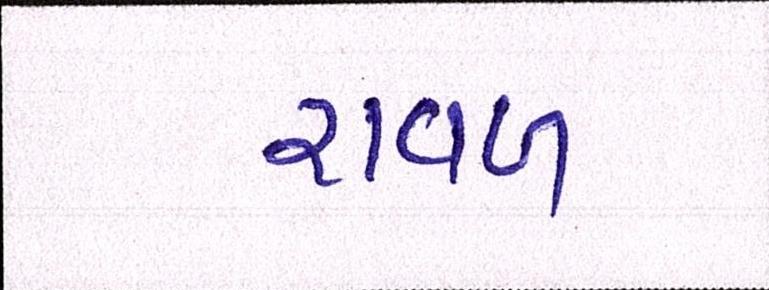 રાવળ